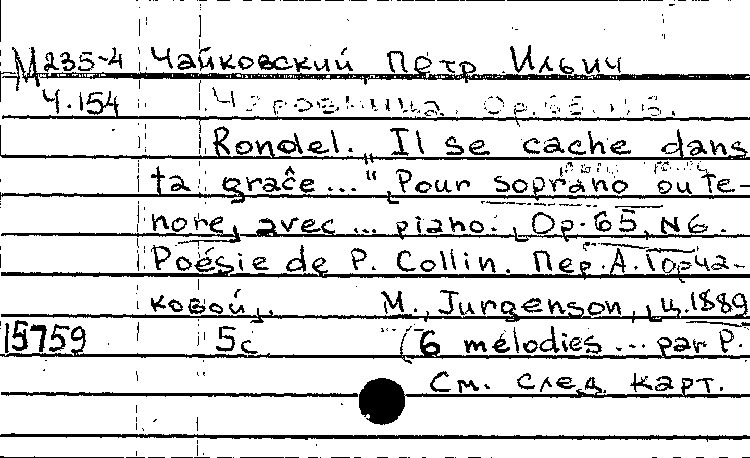 М235-4 Чайковский, Петр Ильич
Ч.154 Чаровница. Op.65. N6.
Rondel. „Il se cache dans
ta grâce..." [Pour soprano ou te-
nore, avec ... piano.] [Op.65, N6.
Poésie de P. Collin. Пер. А. Горча-
ковой]. М., Jurgenson, [ц.1889
15759 5с (6 mélodies ... par P.
См. след. карт.